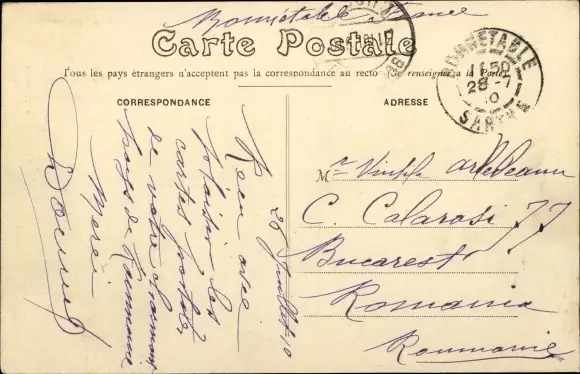 Bonnétable France
Carte Postale
Tous les pays étrangers n'acceptent pas la correspondance au recto (Se renseigner à la Poste)
BONNETABLE
11 50
28 -7
10
SARTHE
CORRESPONDANCE
26 Juillet 10
Reçu avec
plaisir les
cartes postales
de votre charmant
pays de Roumanie
Merci
ADRESSE
Mr
C. Calarasi 77
Bucarest
Romania
Roumanie